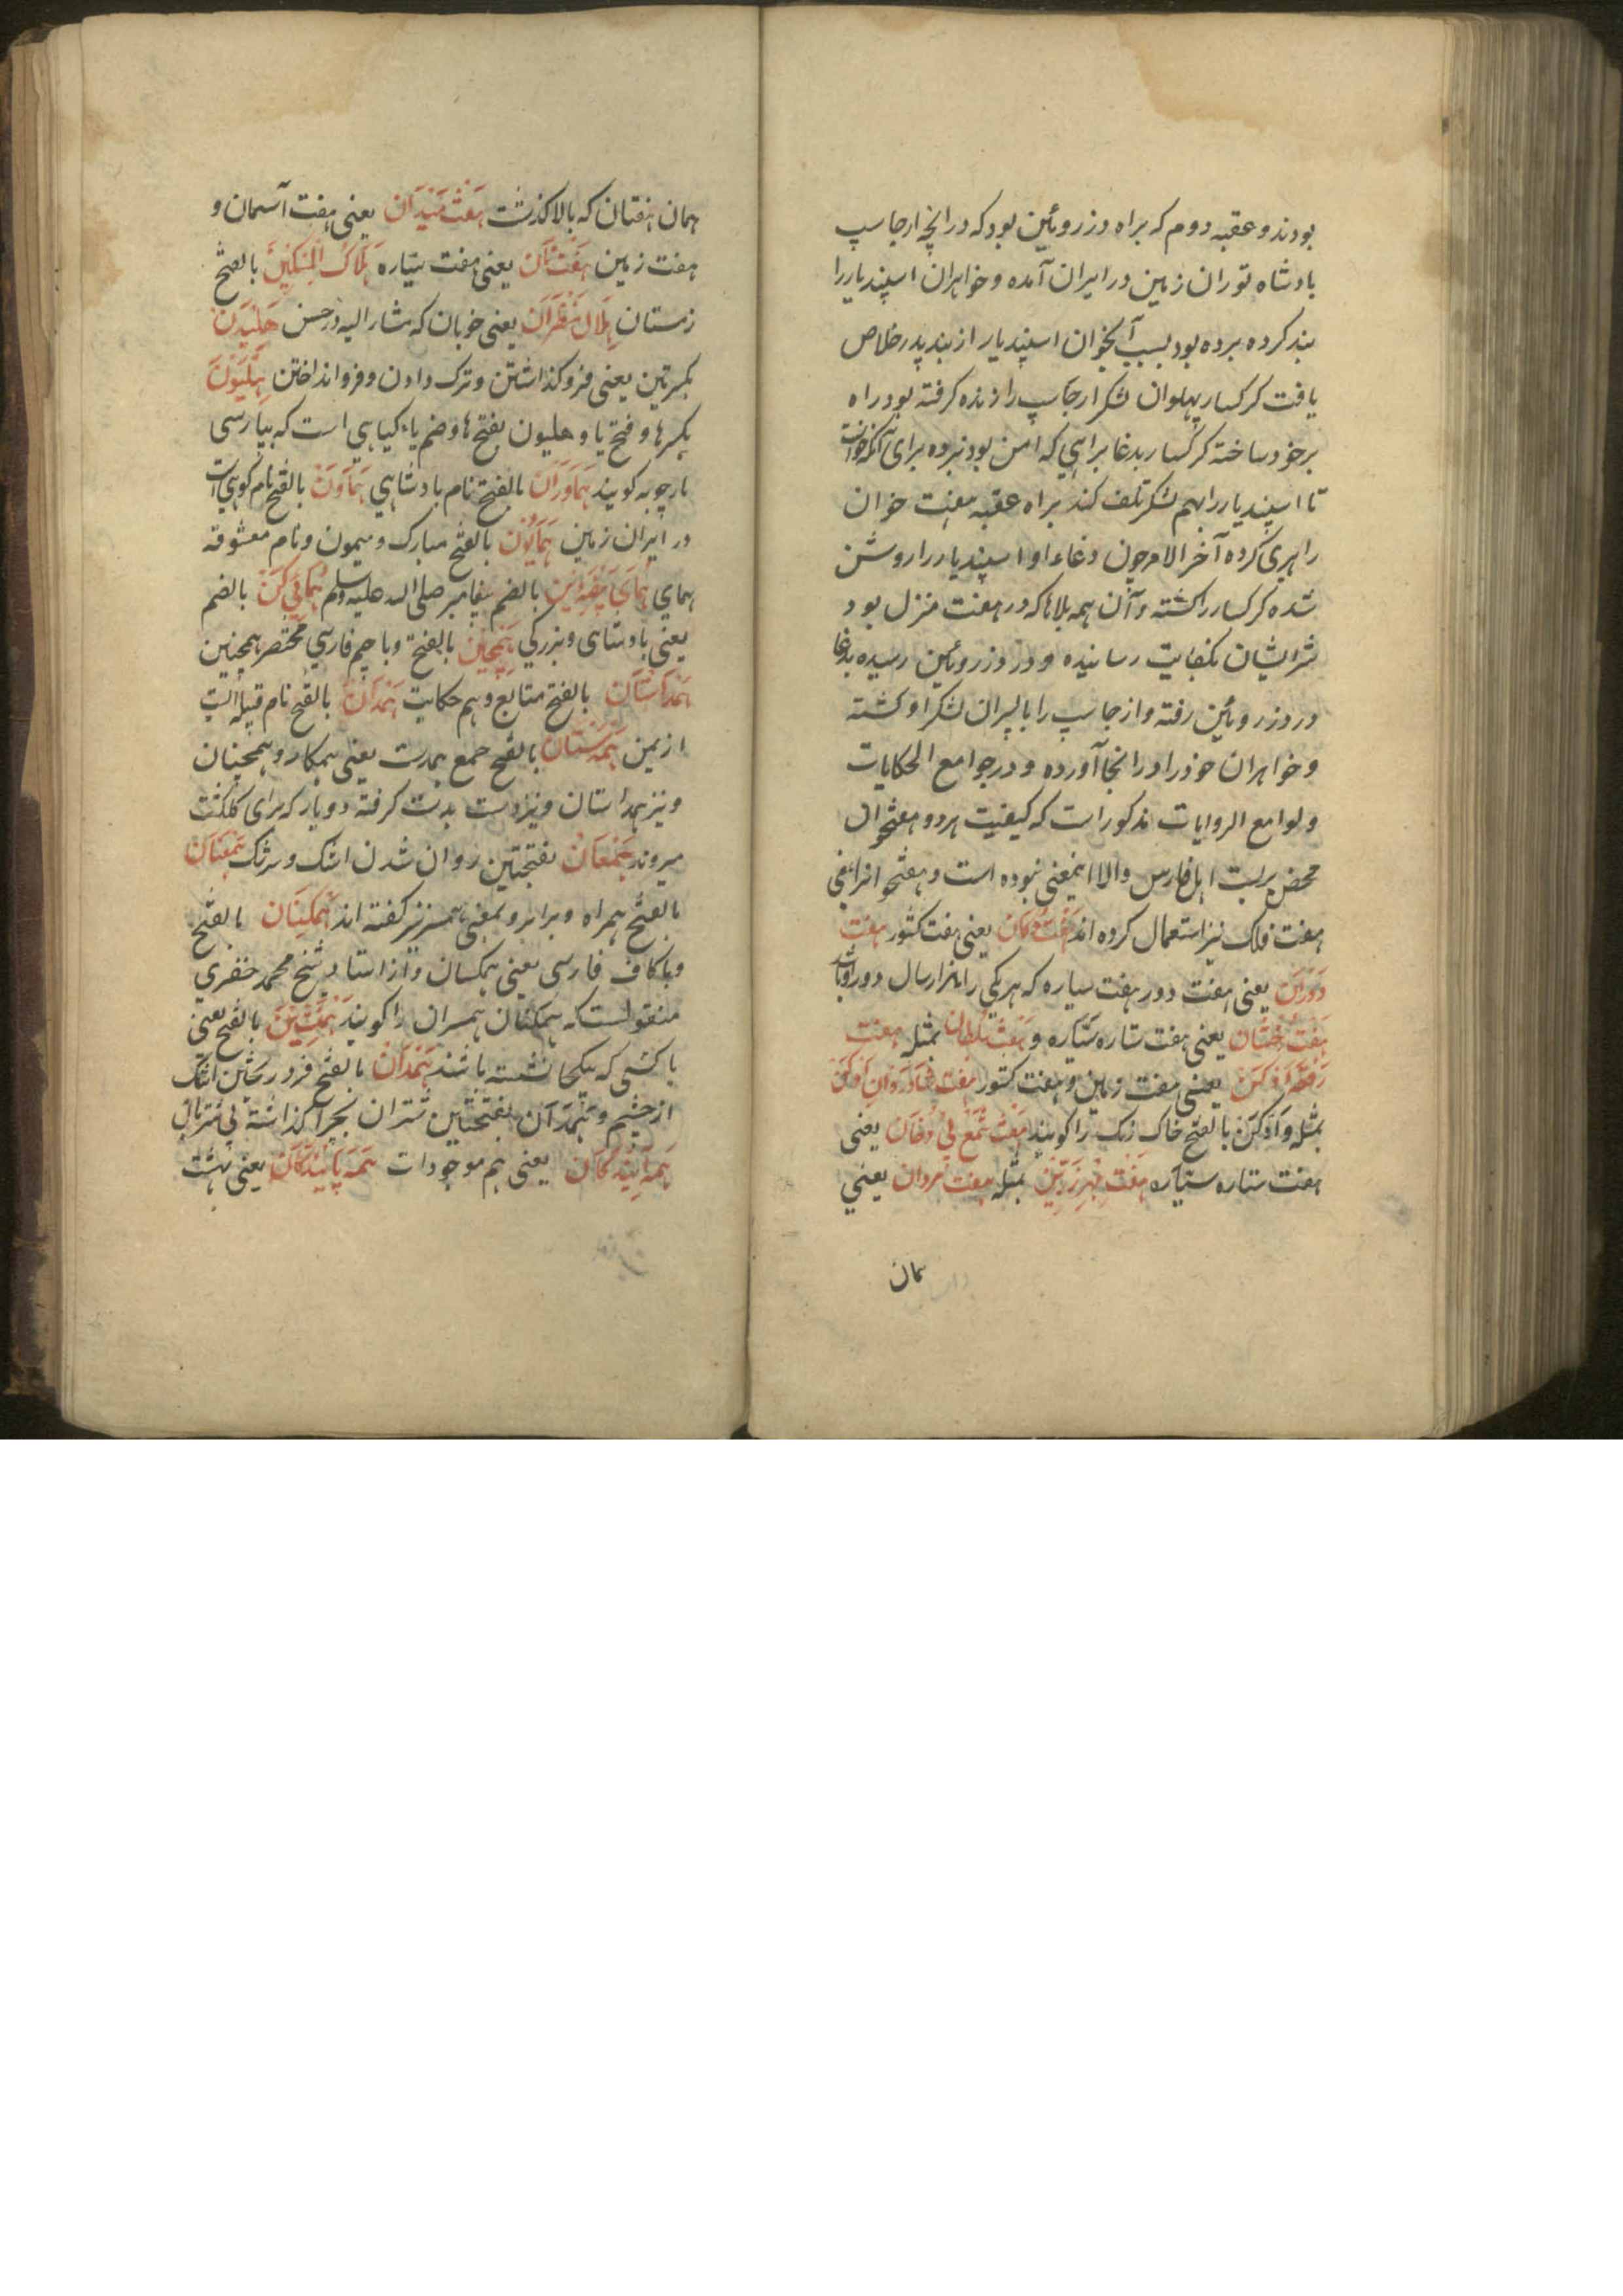 بودند و عقبه دوم که براه دز روئین بود که درانچه ارجاسپ
بادشاه توران زمین در ایران آمده و خواهران اسپندیار را
بند کرده برده بود بسبب آنخوان اسپندیار از بند پدر خلاص
یافت کرکسار پهلوان لشکر ارجاسپ را زنده کرفته بود راه
برخود ساخته کرکسار بدغا براهی که امن بود نبرده برای آنکه خواست
تا اسپندیار را بهم لشکر تلف کند براه عقبه هفت خوان
راهبری کرده آخر الامر چون دغاء او اسپندیار را روشن
شده کرکسار را کشته و آن همه بلاها که در هفت منزل بود
شر ایشان بکفایت رسانیده و در دز روئین رسیده بدغا
در دز روئین رفته و ارجاسپ را با پسران لشکر او کشته
و خواهران خود را در انجا آورده و در جوامع الحکایات
و لوامع الروایات مذکور است که کیفیت هر دو هفتخوان
محض بربست اهل فارس والا اینمعنی نبوده است و هفتخوان را بمعنی
هفت فلک نیز استعمال کرده اند هفت دکان یعنی هفت کشور هفت
دوران یعنی هفت دور هفت سیاره که هر یکی را هزار سال دور است
هفت رخشان یعنی هفت ستاره سیاره و هفت سلطان بمثله هفت
رقعه ادکن یعنی هفت زمین و هفت کشور هفت شادروان ادکن
بمثله و ادکن بالفتح خاک رنک را کویند هفت شمع بی دخان یعنی
هفت ستاره سیاره هفت مهر زرین بمثله هفت مردان یعنی
همان
همان هفتان که بالا کذشت هفت میدان یعنی هفت آسمان و
هفت زمین هفت تان یعنی هفت سیاره هلاک المسکین بالفتح
زمستان هلال منظران یعنی خوبان که مشار الیه در حسن هلیدن
بکسرتین یعنی فروکذاشتن و ترک دادن و فرو انداختن هلیون
بکسر ها و فتح یا و هلیون بفتح ها و ضم یاء کیاهی است که بپارسی
مارچوبه کویند هماوران بالفتح نام بادشاهی هماون بالفتح نام کوهی است
در ایران زمین همایون بالفتح مبارک و میمون و نام معشوقه
همای همای بیضه دین بالضم پیغامبر صلی الله علیه وسلم همائی کن بالضم
یعنی بادشاهی و بزرکی همچین بالفتح و باجیم فارسی مختصر همچنین
همداستان بالفتح متابع و هم حکایت همدان بالفتح نام قبیله ایست
از یمن همدستان بالفتح جمع همدست یعنی همکار و همچنان
و نیز همداستان و نیز دست بدست کرفته دو یار که برای کلکشت
میروند همعان بفتحتین روان شدن اشک و سرشک همعنان
بالفتح همراه و برابر و بمعنی همسر نیز کفته اند همکنان بالفتح
و با کاف فارسی یعنی همکسان و از استاد شیخ محمد خضری
منقولست که همکنان همسران را کویند همنشین بالفتح یعنی
با کسی که یکجا نشسته باشند همدان بالفتح فرو ریختن اشک
از چشم و همدان بفتحتین شتران بچرا کذاشته بی شتربان
همه آیندکان یعنی هم موجودات همه پایندکان یعنی بهشت